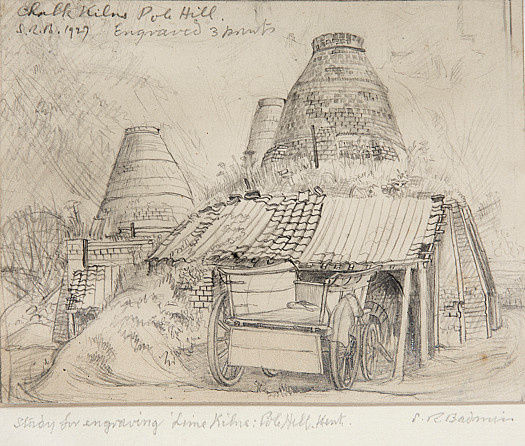 Chalk Kilns Pole Hill.
S.R.B. 1927 Engraved 3 prints
Study for engraving 'Lime Kilns: Pole Hill. Kent. S. R. Badmin